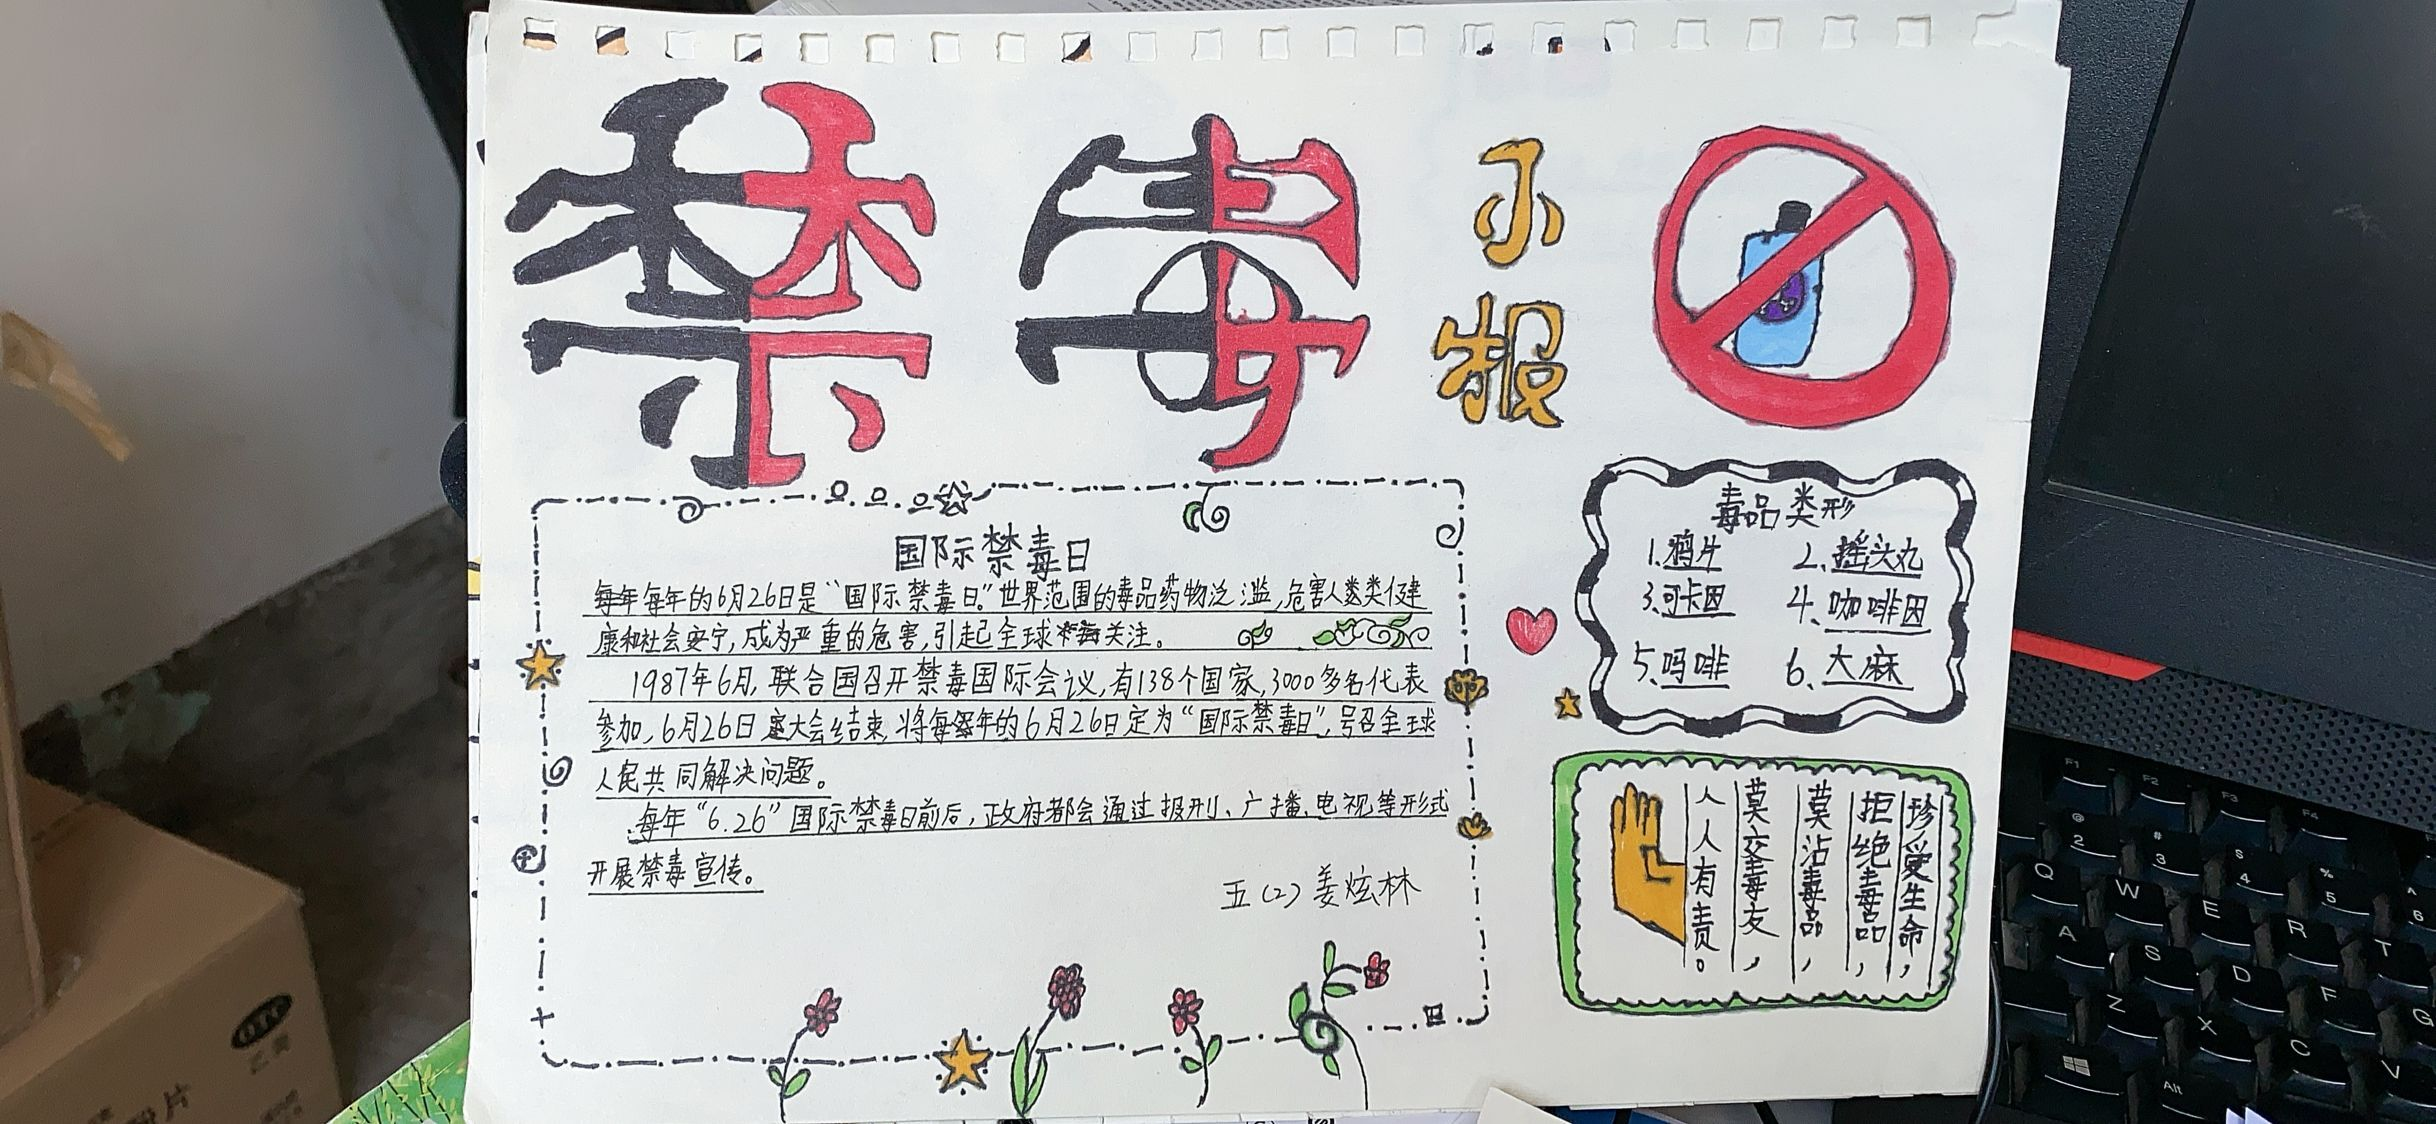 禁毒
小报
国际禁毒日
每年的6月26日是“国际禁毒日”。世界范围的毒品药物泛滥,危害人类健
康和社会安宁,成为严重的危害,引起全球关注。
1987年6月,联合国召开禁毒国际会议,有138个国家,3000多名代表
参加,6月26日大会结束,将每年的6月26日定为“国际禁毒日”,号召全球
人民共同解决问题。
每年“6.26”国际禁毒日前后,政府都会通过报刊、广播、电视等形式
开展禁毒宣传。
五(2)姜炫林
毒品类形
1.鸦片 2.摇头丸
3.可卡因 4.咖啡因
5.吗啡 6.大麻
珍爱生命,
拒绝毒品,
莫沾毒品,
莫交毒友,
人人有责。
F1 F2 F3 F4
@ 2 # 3 $ 4 % 5 6
Q W E R T
A S D F G
Z X C V
Alt
片